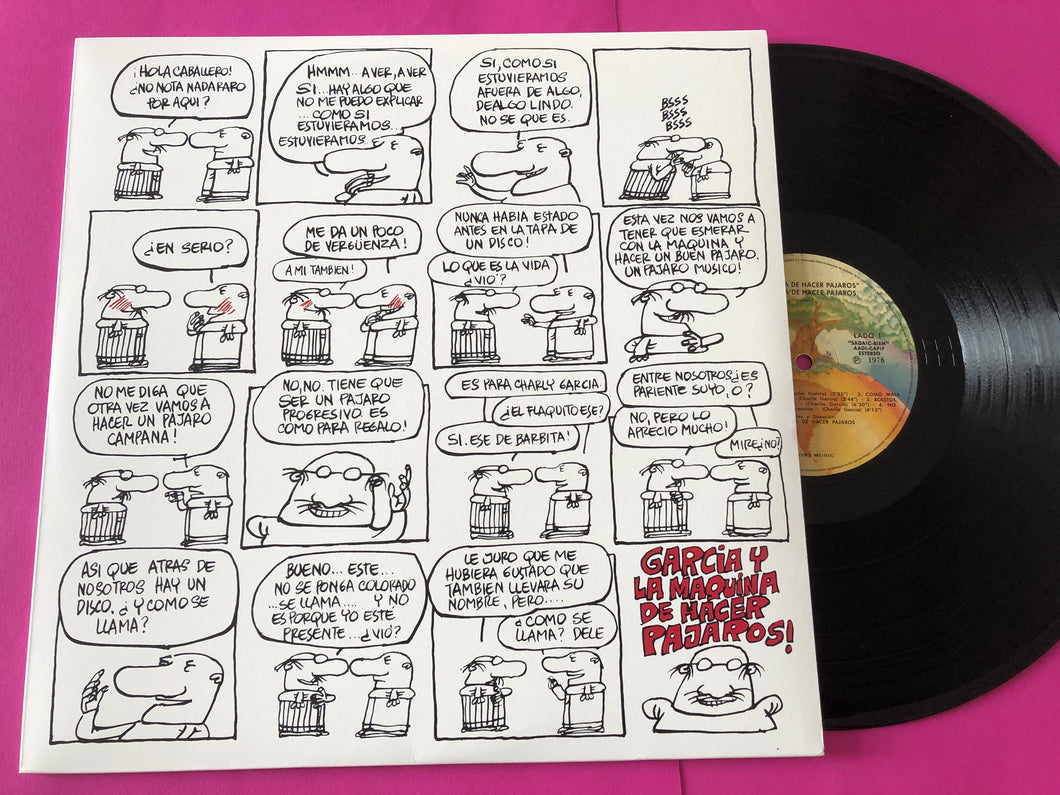 ¡HOLA CABALLERO!
¿NO NOTA NADA RARO
POR AQUI?
HMMM... A VER, A VER
SI... HAY ALGO QUE
NO ME PUEDO EXPLICAR
... COMO SI
ESTUVIERAMOS...
ESTUVIERAMOS
SI, COMO SI
ESTUVIERAMOS
AFUERA DE ALGO,
DE ALGO LINDO.
NO SE QUE ES.
BSSS
BSSS
BSSS
¿EN SERIO?
ME DA UN POCO
DE VERGÜENZA!
A MI TAMBIEN!
NUNCA HABIA ESTADO
ANTES EN LA TAPA DE
UN DISCO!
LO QUE ES LA VIDA
¿VIO?
ESTA VEZ NOS VAMOS A
TENER QUE ESMERAR
CON LA MAQUINA Y
HACER UN BUEN PAJARO.
UN PAJARO MUSICO!
NO ME DIGA QUE
OTRA VEZ VAMOS A
HACER UN PAJARO
CAMPANA!
NO, NO. TIENE QUE
SER UN PAJARO
PROGRESIVO. ES
COMO PARA REGALO!
ES PARA CHARLY GARCIA.
¿EL FLAQUITO ESE?
SI. ESE DE BARBITA!
ENTRE NOSOTROS ¿ES
PARIENTE SUYO, O?
NO, PERO LO
APRECIO MUCHO!
MIRE ¿NO?
ASI QUE ATRAS DE
NOSOTROS HAY UN
DISCO. ¿Y COMO SE
LLAMA?
BUENO... ESTE...
NO SE PONGA COLORADO
...SE LLAMA.... Y NO
ES PORQUE YO ESTE
PRESENTE... ¿VIO?
LE JURO QUE ME
HUBIERA GUSTADO QUE
TAMBIEN LLEVARA SU
NOMBRE, PERO....
¿COMO SE
LLAMA? DELE
GARCIA Y
LA MAQUINA
DE HACER
PAJAROS!
A DE HACER PAJAROS"
A DE HACER PAJAROS
LADO 1
"SADAIC-BIEM"
AADI-CAPIF
ESTEREO
℗ 1976
Charlie García) (5'35") - 2. COMO MATA
(Charlie García) (3'44") - 3. BOLETOS
(Charlie García) (6'30") - 4. NO
(Charlie García) (6'15")
y Dirección:
A DE HACER PAJAROS
MUSIC